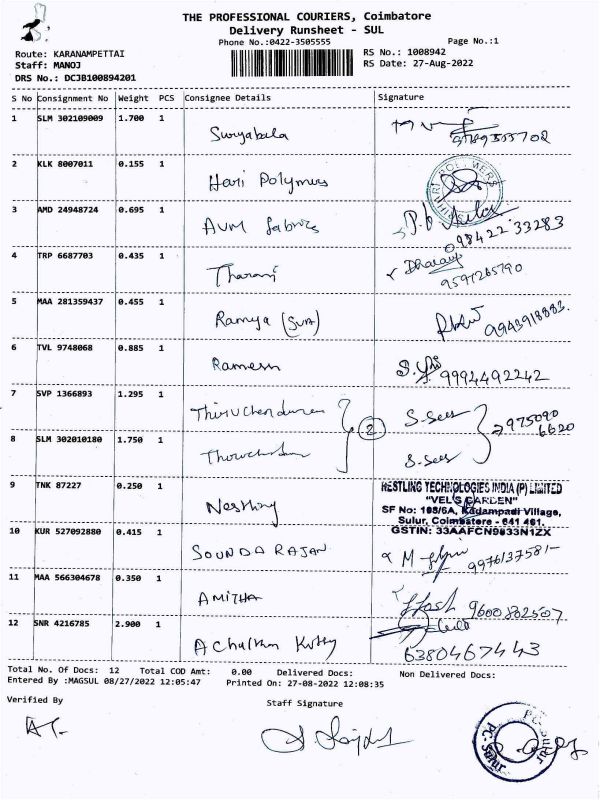 THE PROFESSIONAL COURIERS, Coimbatore
Delivery Runsheet - SUL
Phone No.:0422-3505555 Page No.:1
Route: KARANAMPETTAI RS No.: 1008942
Staff: MANOJ RS Date: 27-Aug-2022
DRS No.: DCJB100894201
S No Consignment No Weight PCS Consignee Details Signature
1 SLM 302109009 1.700 1 Suryabala
2 KLK 8007011 0.155 1 Hari Polymers
3 AMD 24948724 0.695 1 AVM fabrics
98422 33283
4 TRP 6687703 0.435 1 Tharani
9597265790
5 MAA 281359437 0.455 1 Ramya (SUR) 9943918883
6 TVL 9748068 0.885 1 Ramesh 9994492242
7 SVP 1366893 1.295 1 Thiruchenduran S-Sees
2 975090
6620
8 SLM 302010180 1.750 1 S-Sees
9 TNK 87227 0.250 1 Nestling
NESTLING TECHNOLOGIES INDIA (P) LIMITED
"VEL'S GARDEN"
Kadampadi Village,
Sulur, Coimbatore - 641 401.
GSTIN: 33AAFCN9833N1ZX
10 KUR 527092880 0.415 1 SOUNDARAJAN 9976137581
11 MAA 566304678 0.350 1 AMITHA 9600802507
12 SNR 4216785 2.900 1 Achuthan Kutty
6380467443
Total No. Of Docs: 12 Total COD Amt: 0.00 Delivered Docs: Non Delivered Docs:
Entered By :MAGSUL 08/27/2022 12:05:47 Printed On: 27-08-2022 12:08:35
Verified By Staff Signature